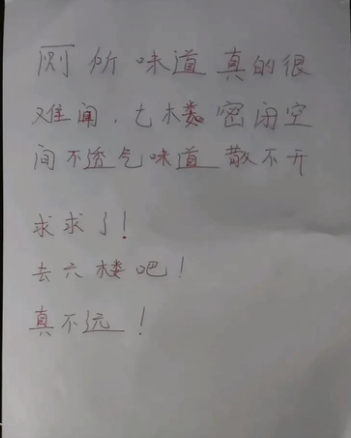 厕所味道真的很
难闻，七楼密闭空
间不透气味道散不开
求求了！
去六楼吧！
真不远！